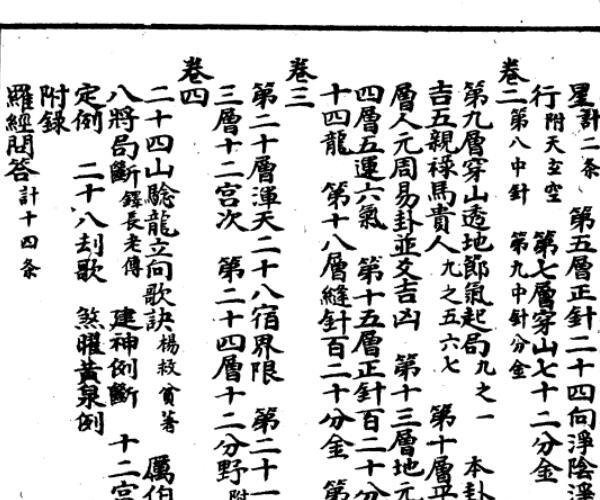 星計二条 第五層正針二十四向淨陰淨
行附天玄空 第七層穿山七十二分金
卷二第八中針 第九中針分金
第九層穿山透地節氣起局九之一 本卦
吉五親祿馬貴人九之五六七 第十層平
層人元周易卦並爻吉凶 第十三層地元
四層五運六氣 第十五層正針百二十分
十四龍 第十八層縫針百二十分金 第
卷三
第二十層渾天二十八宿界限 第二十一
三層十二宮次 第二十四層十二分野附
卷四
二十四山驗龍立向歌訣楊救貧著 厲伯
八將局斷鐸長老傳 建神例斷 十二宮
定例 二十八刦歌 煞曜黃泉例
附錄
羅經問答計十四条